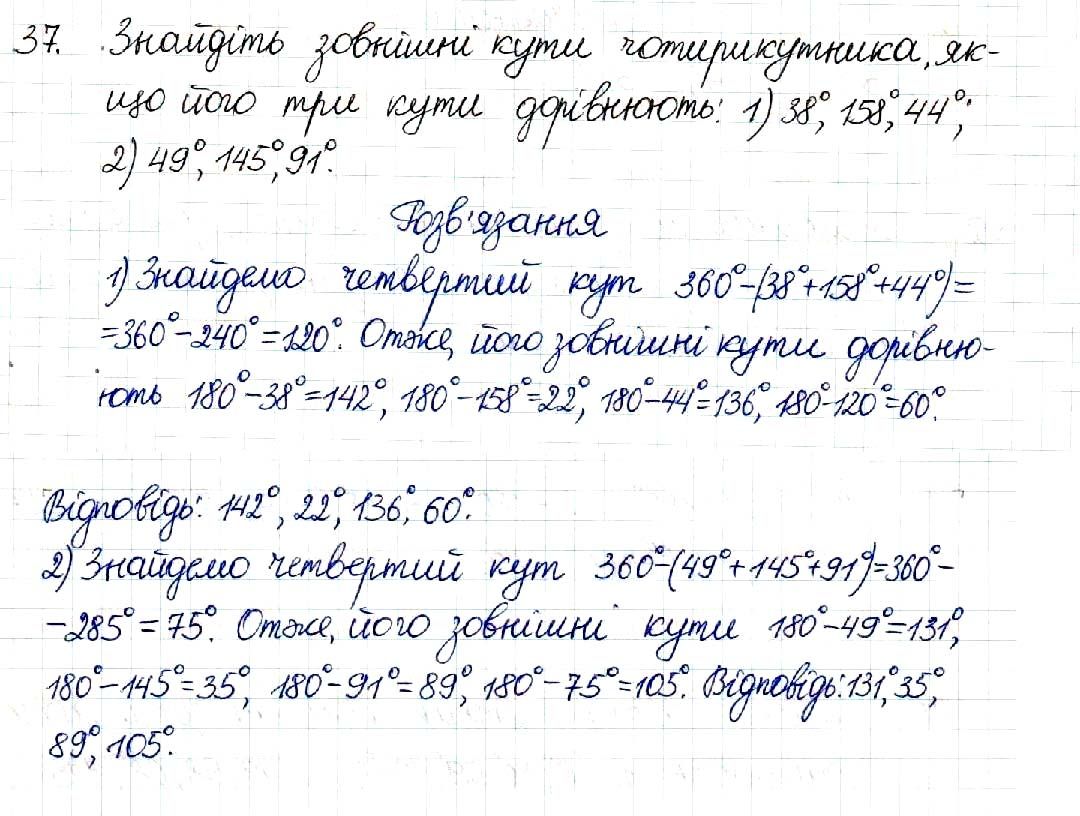 37. Знайдіть зовнішні кути чотирикутника, як-
що його три кути дорівнюють: 1) 38°, 158°, 44°;
2) 49°, 145°, 91°.
Розв'язання
1) Знайдемо четвертий кут 360°-(38°+158°+44°)=
=360°-240°=120°. Отже, його зовнішні кути дорівню-
ють 180°-38°=142°, 180°-158°=22°, 180°-44°=136°, 180°-120°=60°.
Відповідь: 142°, 22°, 136°, 60°.
2) Знайдемо четвертий кут 360°-(49°+145°+91°)=360°-
-285°=75°. Отже, його зовнішні кути 180°-49°=131°,
180°-145°=35°, 180°-91°=89°, 180°-75°=105°. Відповідь: 131°, 35°,
89°, 105°.